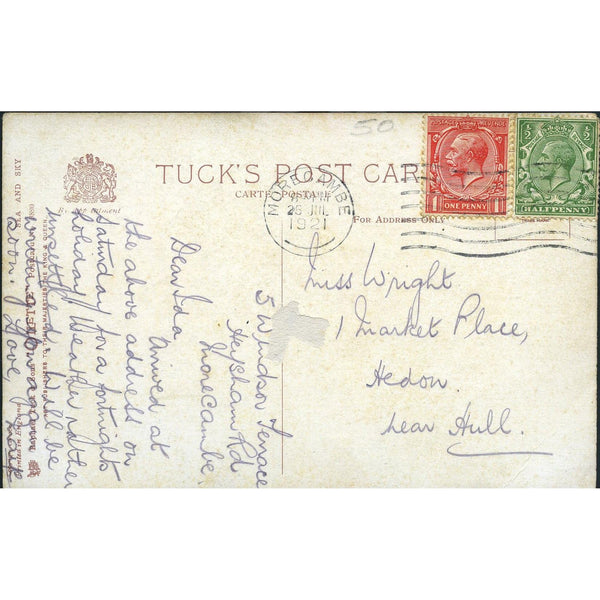 50
TUCK'S POST CARD
CARTE POSTALE
FOR ADDRESS ONLY
MORECAMBE
25 JUL
1921
POSTAGE REVENUE
ONE PENNY
HALFPENNY
SEA AND SKY
Miss Wright
1 Market Place,
Hedon.
near Hull.
5 Windsor Terrace
Heysham Rd
Morecambe
Dear Ida
Arrived at
the above address on
Saturday for a fortnights
holiday Weather rather
unsettled. I'll be
soon. Love,